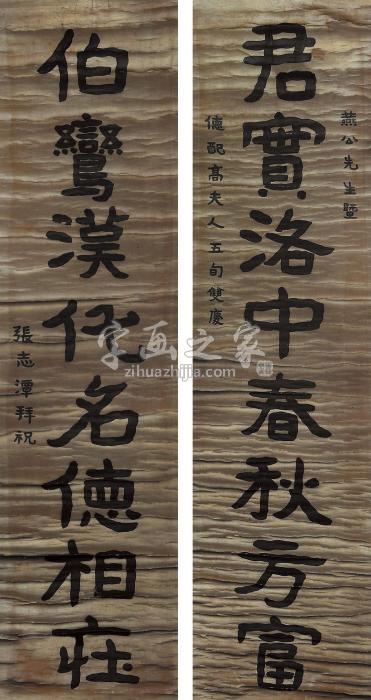 燕公先生暨
君實洛中春秋方富
德配高夫人五旬雙慶
伯鸞漢代名德相莊
張志潭拜祝
字画之家
zihuazhijia.com